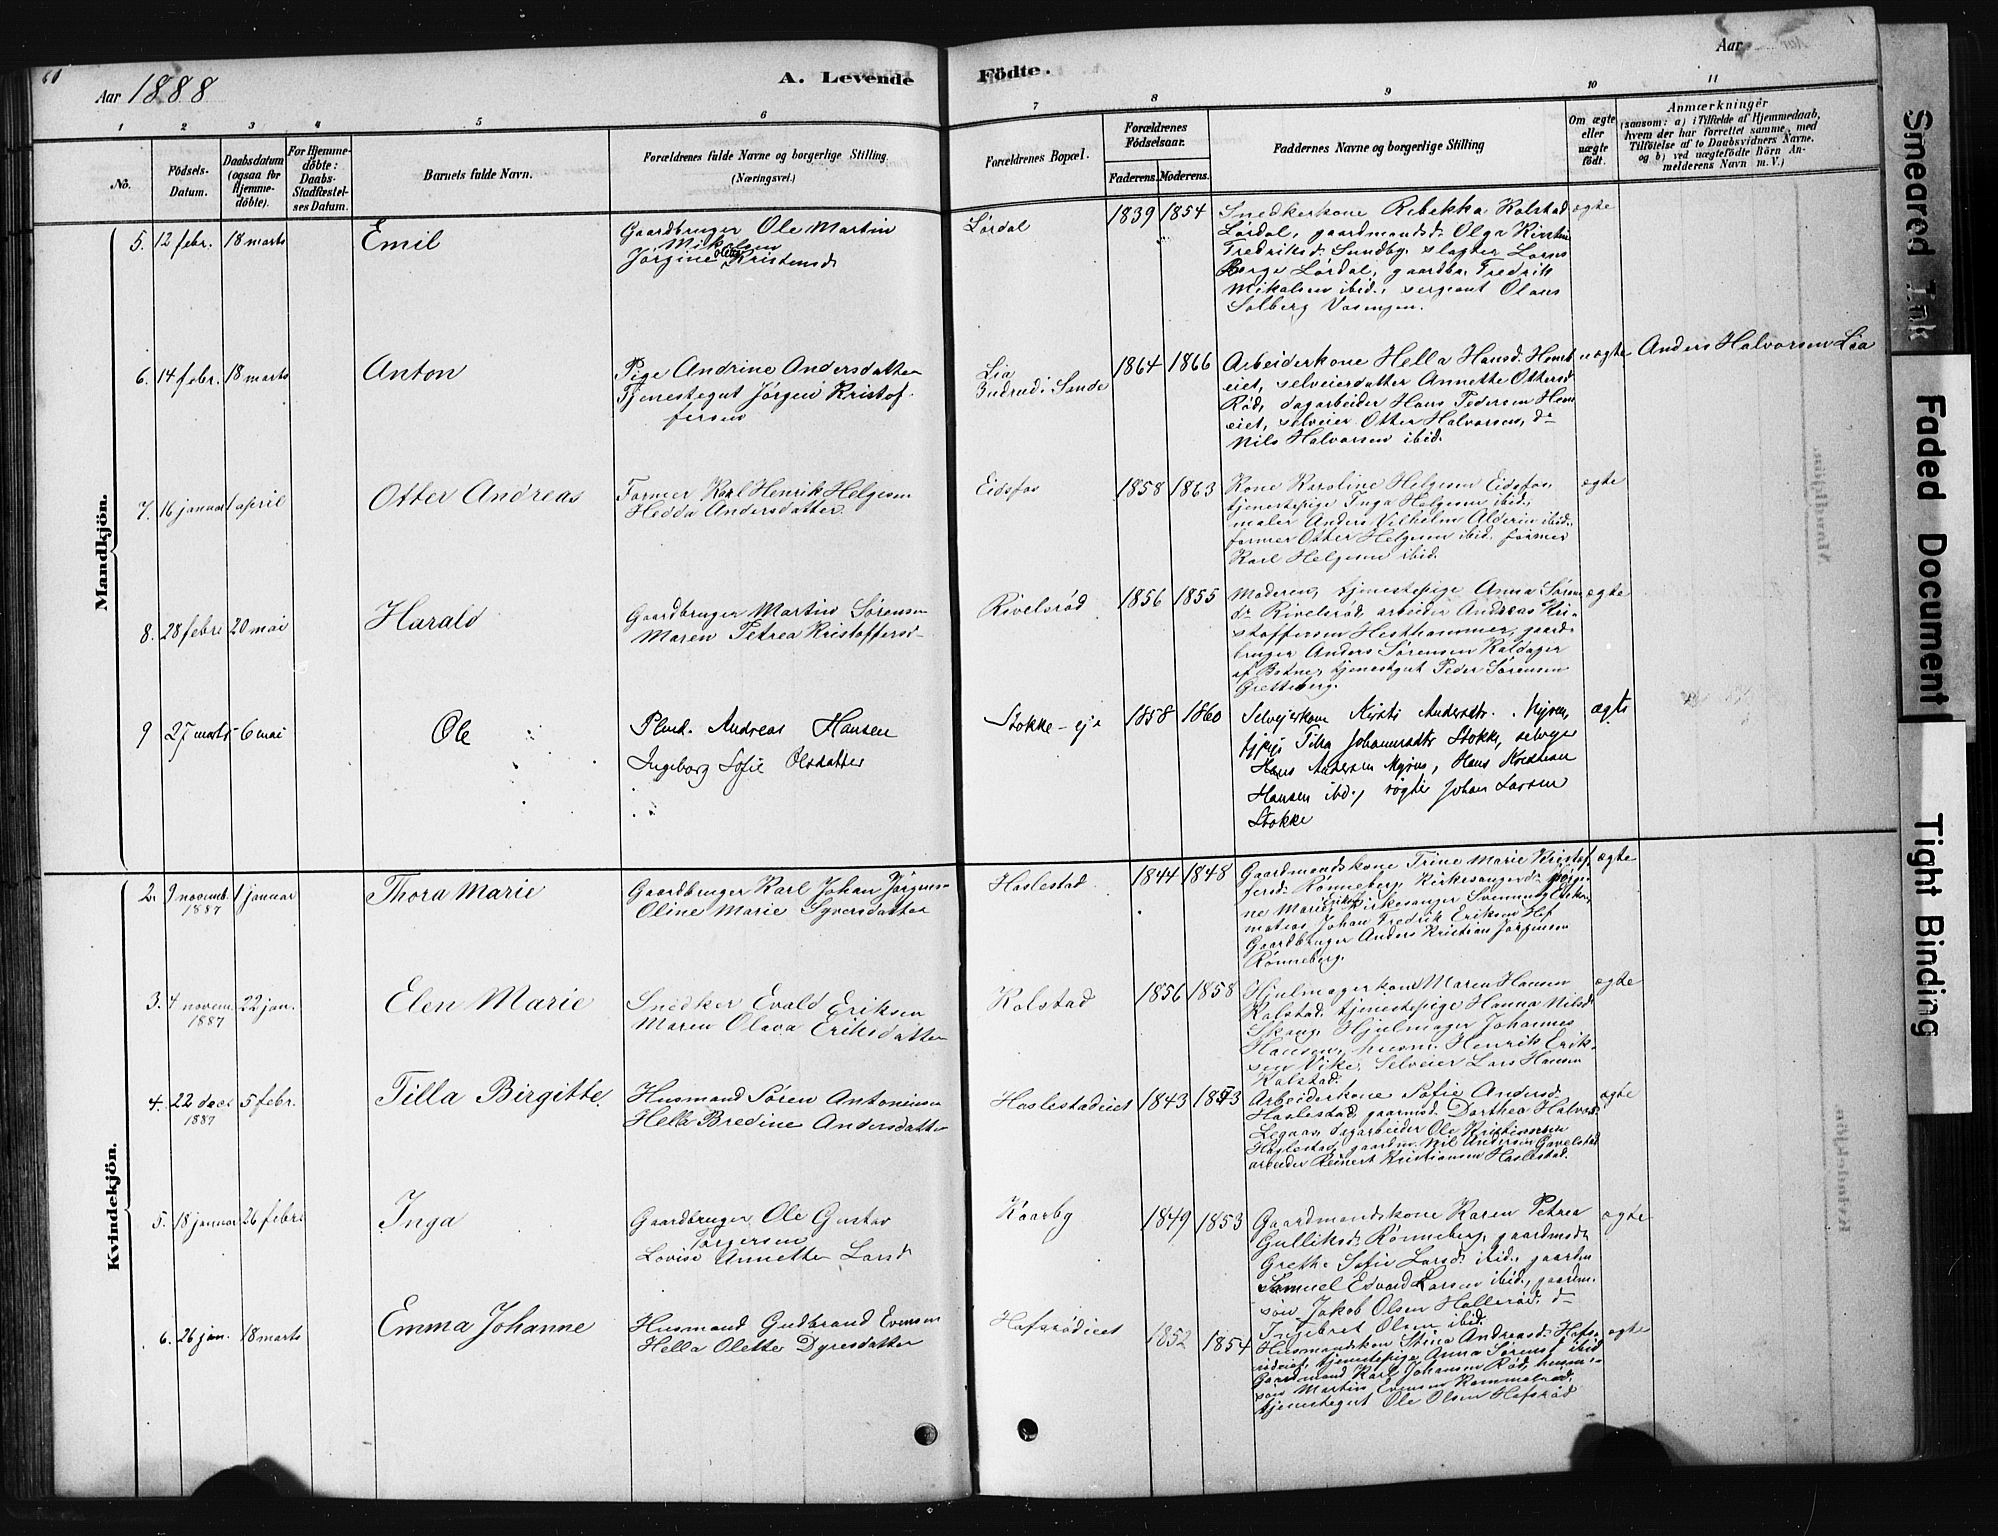 60
Aar 1888
A. Levende
Födte.
Aar
1
2
3
4
5
6
7
8
9
10
11
No.
Födsels-
Datum.
Daabsdatum
(ogsaa for
Hjemme-
döbte).
For Hjemme-
döbte:
Daabs-
Stadfæstel-
ses Datum.
Barnets fulde Navn.
Forældrenes fulde Navne og borgerlige Stilling
(Næringsvei.)
Forældrenes Bopæl.
Forældrenes
Födselsaar.
Faderens.
Moderens.
Faddernes Navne og borgerlige Stilling
Om ægte
eller
uægte
födt.
Anmærkninger
(saasom: a) i Tilfælde af Hjemmedaab,
hvem der har forrettet samme, med
Tilföielse af to Daabsvidners Navne.
og b) ved uægtefödte Börn An-
melderens Navn m. V.)
Mandkjön.
5. 12 febr. 18 marts
Emil
Gaardbruger Ole Martin
Mikalsen
Jørgine Olea Kristensd.
Lørdal
1839 1854
Snedkerkone Rebekka Kolstad
Lørdal, gaardmandsd. Olga Kirstine
Fredriksd. Sundby, slagter Lorns
Borge Lørdal, gaardbr. Fredrik
Mikalsen ibid., sergeant Olaus
Solberg Vasengen.
ægte
6. 14 febr. 18 marts
Anton
Pige Andrine Andersdatter
Tjenestegut Jørgen Kristof-
fersen
Lia
i Sande
1864 1866
Arbeiderkone Hella Hansd. Hemb
eiet, selveiersdatter Annette Ottersd
Rød, dagarbeider Hans Pedersen Hem
eiet, selveier Otter Halvorsen, do
Nils Halvorsen ibid.
uægte
Anders Halvorsen Lia
7. 16 januar 1 april
Otter Andreas
Former Karl Henrik Helgesen
Hedda Andersdatter
Eidsfos
1858 1863
Kone Karoline Helgesen Eidsfos,
tjenestepige Inga Helgesen ibid.,
maler Anders Vilhelm Alderin ibid.,
former Otter Helgesen ibid. former
Karl Helgesen ibid.
ægte
8. 28 febr 20 mai
Harald
Gaardbruger Martin Sørensen
Maren Petrea Kristoffersd
Rivelsrød
1856 1855
Moderen, tjenestepige Anna Sørens
dr Rivelsrød arbeider Andreas Kri-
stoffersen Hesthammer, gaard-
bruger Anders Sørensen Kaldager
af Botne, tjenestgut Peder Sørensen
Gretteberg.
ægte
9 27 marts 6 mai
Ole
Plmd. Andreas Hansen
Ingeborg Sofie Olsdatter
Stokke-eje
1858 1860
Selvejerkone Kirsti Andersdtr. Myren,
tjpige Petra Johannesdtr Stokke, selvejer
Hans Andersen Myren, Hans Kristian
Hansen ibd., røgter Johan Larsen
Stokke
ægte
Kvindekjön.
2. 9 novemb. 1 januar
1887
Thora Marie
Gaardbruger Karl Johan Jørgensen
Oline Marie Syversdatter
Haslestad
1844 1848
Gaardmandskone Trine Marie Kristof
fersd. Rønneberg, Kirkesangerd. Jørgi-
ne Marie Eriksen, Kirkesanger Svennung Eriksen,
Johan Fredrik Eriksen Hof
Gaardbruger Anders Kristian Jørgensen
Rønneberg.
ægte
3. 4 novem. 22 jan.
1887
Elen Marie
Snedker Evald Eriksen
Maren Olava Eriksdatter
Kolstad
1856 1858
Hjulmagerkone Maren Hansen
Kolstad tjenestepige Hanna Nilsd
Skaug, Hjulmager Johannes
Hansen, husm. Henrik Erik-
sen Vike, Selveier Lars Hansen
Kolstad.
ægte
4. 22 dec. 5 febr.
1887
Tilla Birgitte
Husmand Søren Antonisen
Hella Bredine Andersdatter
Haslestadeiet
1843 1853
Arbeiderkone Sofie Andersd.
Haslestad, gaarmsd. Dorthea Halvors
dagarbeider Ole Kristiansen
Haslestad, gaardm. Nil Andersen Gavelstad
arbeider Reinert Kristiansen Haslestad.
ægte
5. 18 januar 26 febr
Inga
Gaardbruger Ole Gustav
Torgersen
Lovise Annette Larsd
Kaarby
1849 1853
Gaardmandskone Karen Petrea
Gulliksd. Rønneberg, gaardmsdr
Grethe Sofie Larsd. ibid., gaardm
Samuel Edvard Larsen ibid., gaardm.
søn Jakob Olsen Hallerød, do
Ingebret Olsen ibid.
ægte
6. 26 jan. 18 marts
Emma Johanne
Husmand Gudbrand Evensen
Hella Olette Dyresdatter
Hafsrødeiet
1852 1854
Husmandskone Stina Andreasd. Hafs-
rødeiet, tjenestepige Anna Sørensd ibid
Gaardmand Karl Johansen Rød, husm.-
søn Martin Evensen
tjenestegut Ole Olsen Hafsrød
ægte
Smeared Ink
Faded Document
Tight Binding